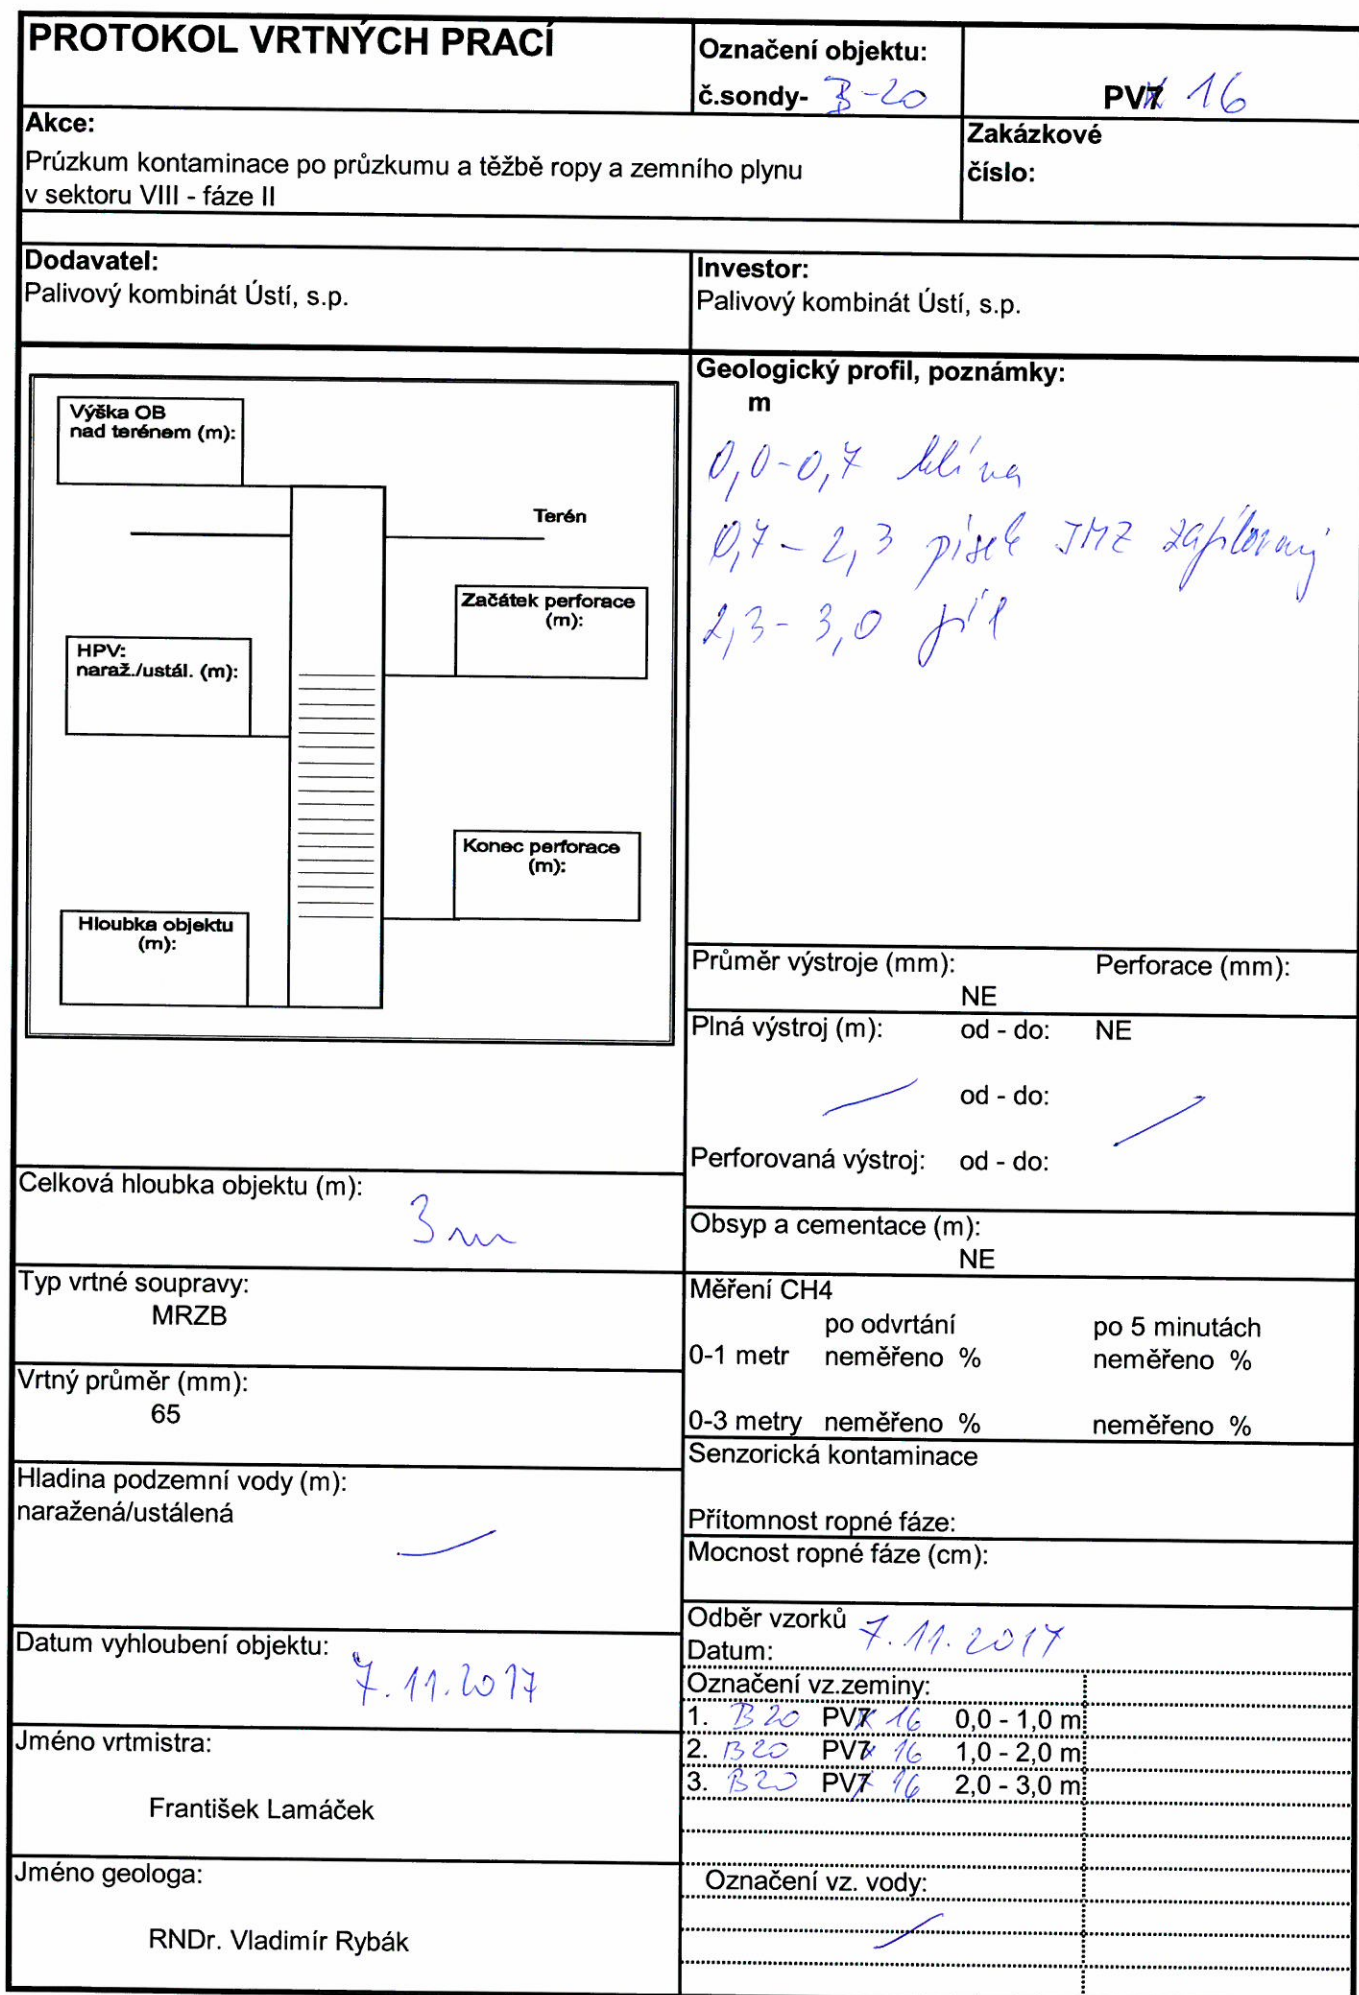 PROTOKOL VRTNÝCH PRACÍ
Označení objektu:
č.sondy- B-20
PV 16
Akce:
Prúzkum kontaminace po průzkumu a těžbě ropy a zemního plynu
v sektoru VIII - fáze II
Zakázkové
číslo:
Dodavatel:
Palivový kombinát Ústí, s.p.
Investor:
Palivový kombinát Ústí, s.p.
Výška OB
nad terénem (m):
Terén
Začátek perforace
(m):
HPV:
naraž./ustál. (m):
Konec perforace
(m):
Hloubka objektu
(m):
Geologický profil, poznámky:
m
0,0-0,7 hlína
0,7-2,3 písek JMZ zajílovaný
2,3-3,0 jíl
Průměr výstroje (mm): Perforace (mm):
NE
Plná výstroj (m): od - do: NE
od - do:
Perforovaná výstroj: od - do:
Celková hloubka objektu (m):
3 m
Obsyp a cementace (m):
NE
Typ vrtné soupravy:
MRZB
Měření CH4
po odvrtání po 5 minutách
0-1 metr neměřeno % neměřeno %
0-3 metry neměřeno % neměřeno %
Vrtný průměr (mm):
65
Senzorická kontaminace
Přítomnost ropné fáze:
Mocnost ropné fáze (cm):
Hladina podzemní vody (m):
naražená/ustálená
Datum vyhloubení objektu:
7.11.2017
Odběr vzorků 7.11.2017
Datum:
Označení vz.zeminy:
1. B20 PV 16 0,0 - 1,0 m
2. B20 PV 16 1,0 - 2,0 m
3. B20 PV 16 2,0 - 3,0 m
Jméno vrtmistra:
František Lamáček
Jméno geologa:
RNDr. Vladimír Rybák
Označení vz. vody: